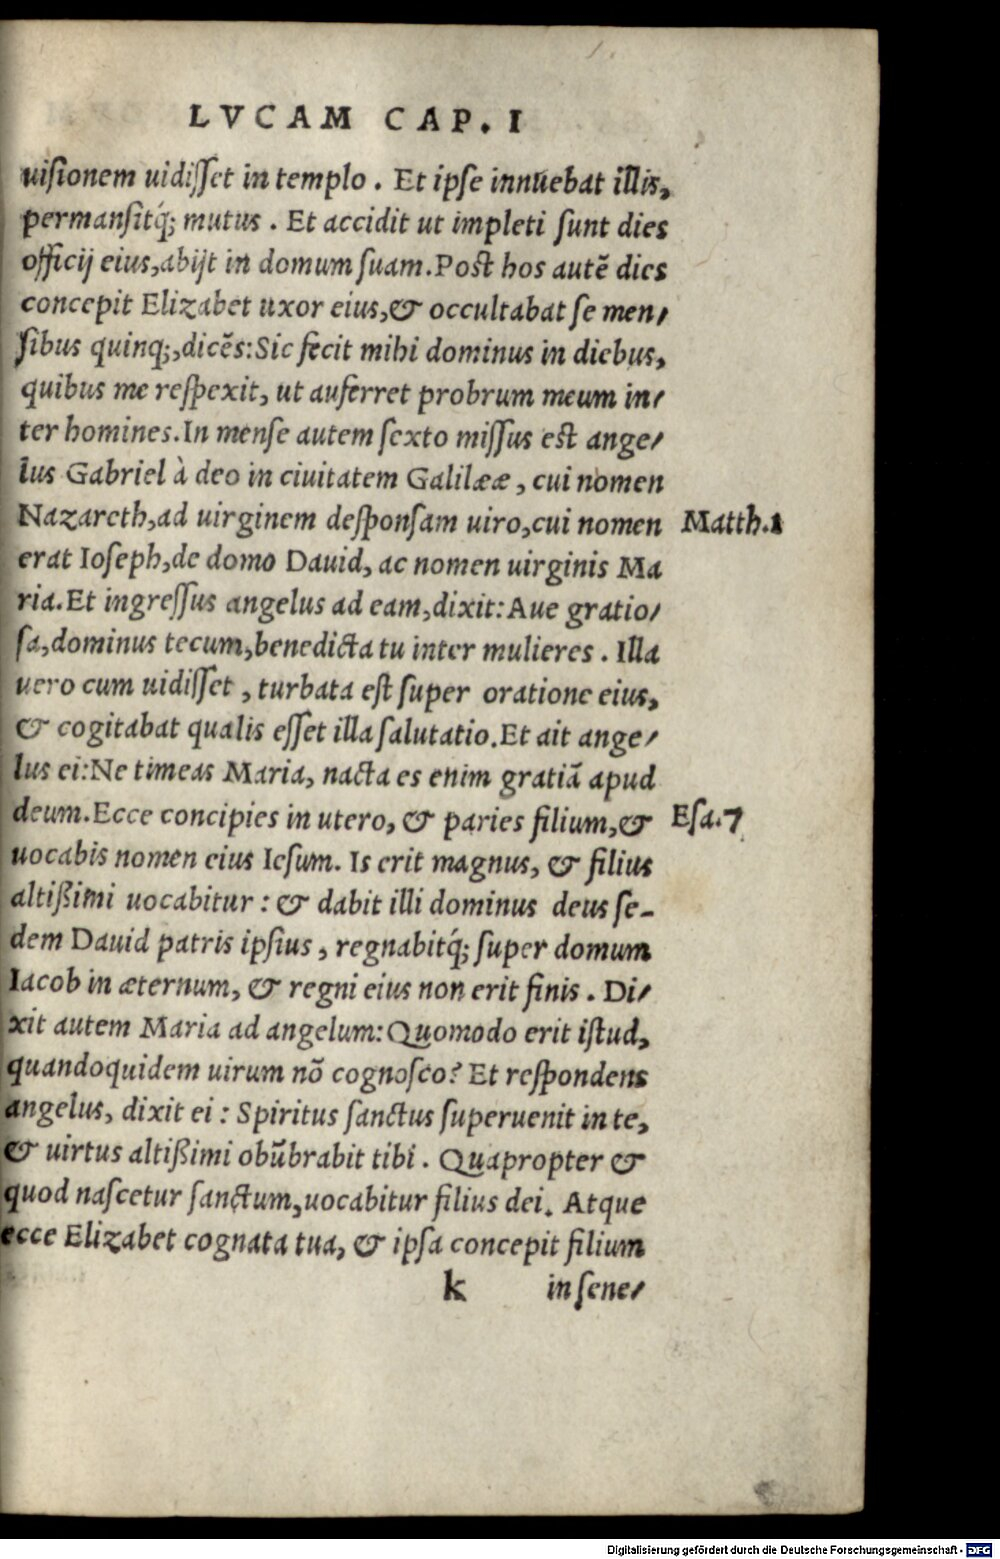 LVCAM CAP. I
uisionem uidisset in templo. Et ipse innuebat illis,
permansitq́; mutus. Et accidit ut impleti sunt dies
officij eius, abijt in domum suam. Post hos autẽ dies
concepit Elizabet uxor eius, & occultabat se men/
sibus quinq;, dicẽs: Sic fecit mihi dominus in diebus,
quibus me respexit, ut auferret probrum meum in/
ter homines. In mense autem sexto missus est ange/
lus Gabriel à deo in ciuitatem Galilææ, cui nomen
Nazareth, ad uirginem desponsam uiro, cui nomen Matth. 1
erat Ioseph, de domo Dauid, ac nomen uirginis Ma
ria. Et ingressus angelus ad eam, dixit: Aue gratio/
sa, dominus tecum, benedicta tu inter mulieres. Illa
uero cum uidisset, turbata est super oratione eius,
& cogitabat qualis esset illa salutatio. Et ait ange/
lus ei: Ne timeas Maria, nacta es enim gratiã apud
deum. Ecce concipies in utero, & paries filium, & Esa. 7
uocabis nomen eius Iesum. Is erit magnus, & filius
altißimi uocabitur: & dabit illi dominus deus se-
dem Dauid patris ipsius, regnabitq́; super domum
Iacob in æternum, & regni eius non erit finis. Di/
xit autem Maria ad angelum: Quomodo erit istud,
quandoquidem uirum nõ cognosco? Et respondens
angelus, dixit ei: Spiritus sanctus superuenit in te,
& uirtus altißimi obũbrabit tibi. Quapropter &
quod nascetur sanctum, uocabitur filius dei. Atque
ecce Elizabet cognata tua, & ipsa concepit filium
k in sene/
Digitalisierung gefördert durch die Deutsche Forschungsgemeinschaft - DFG